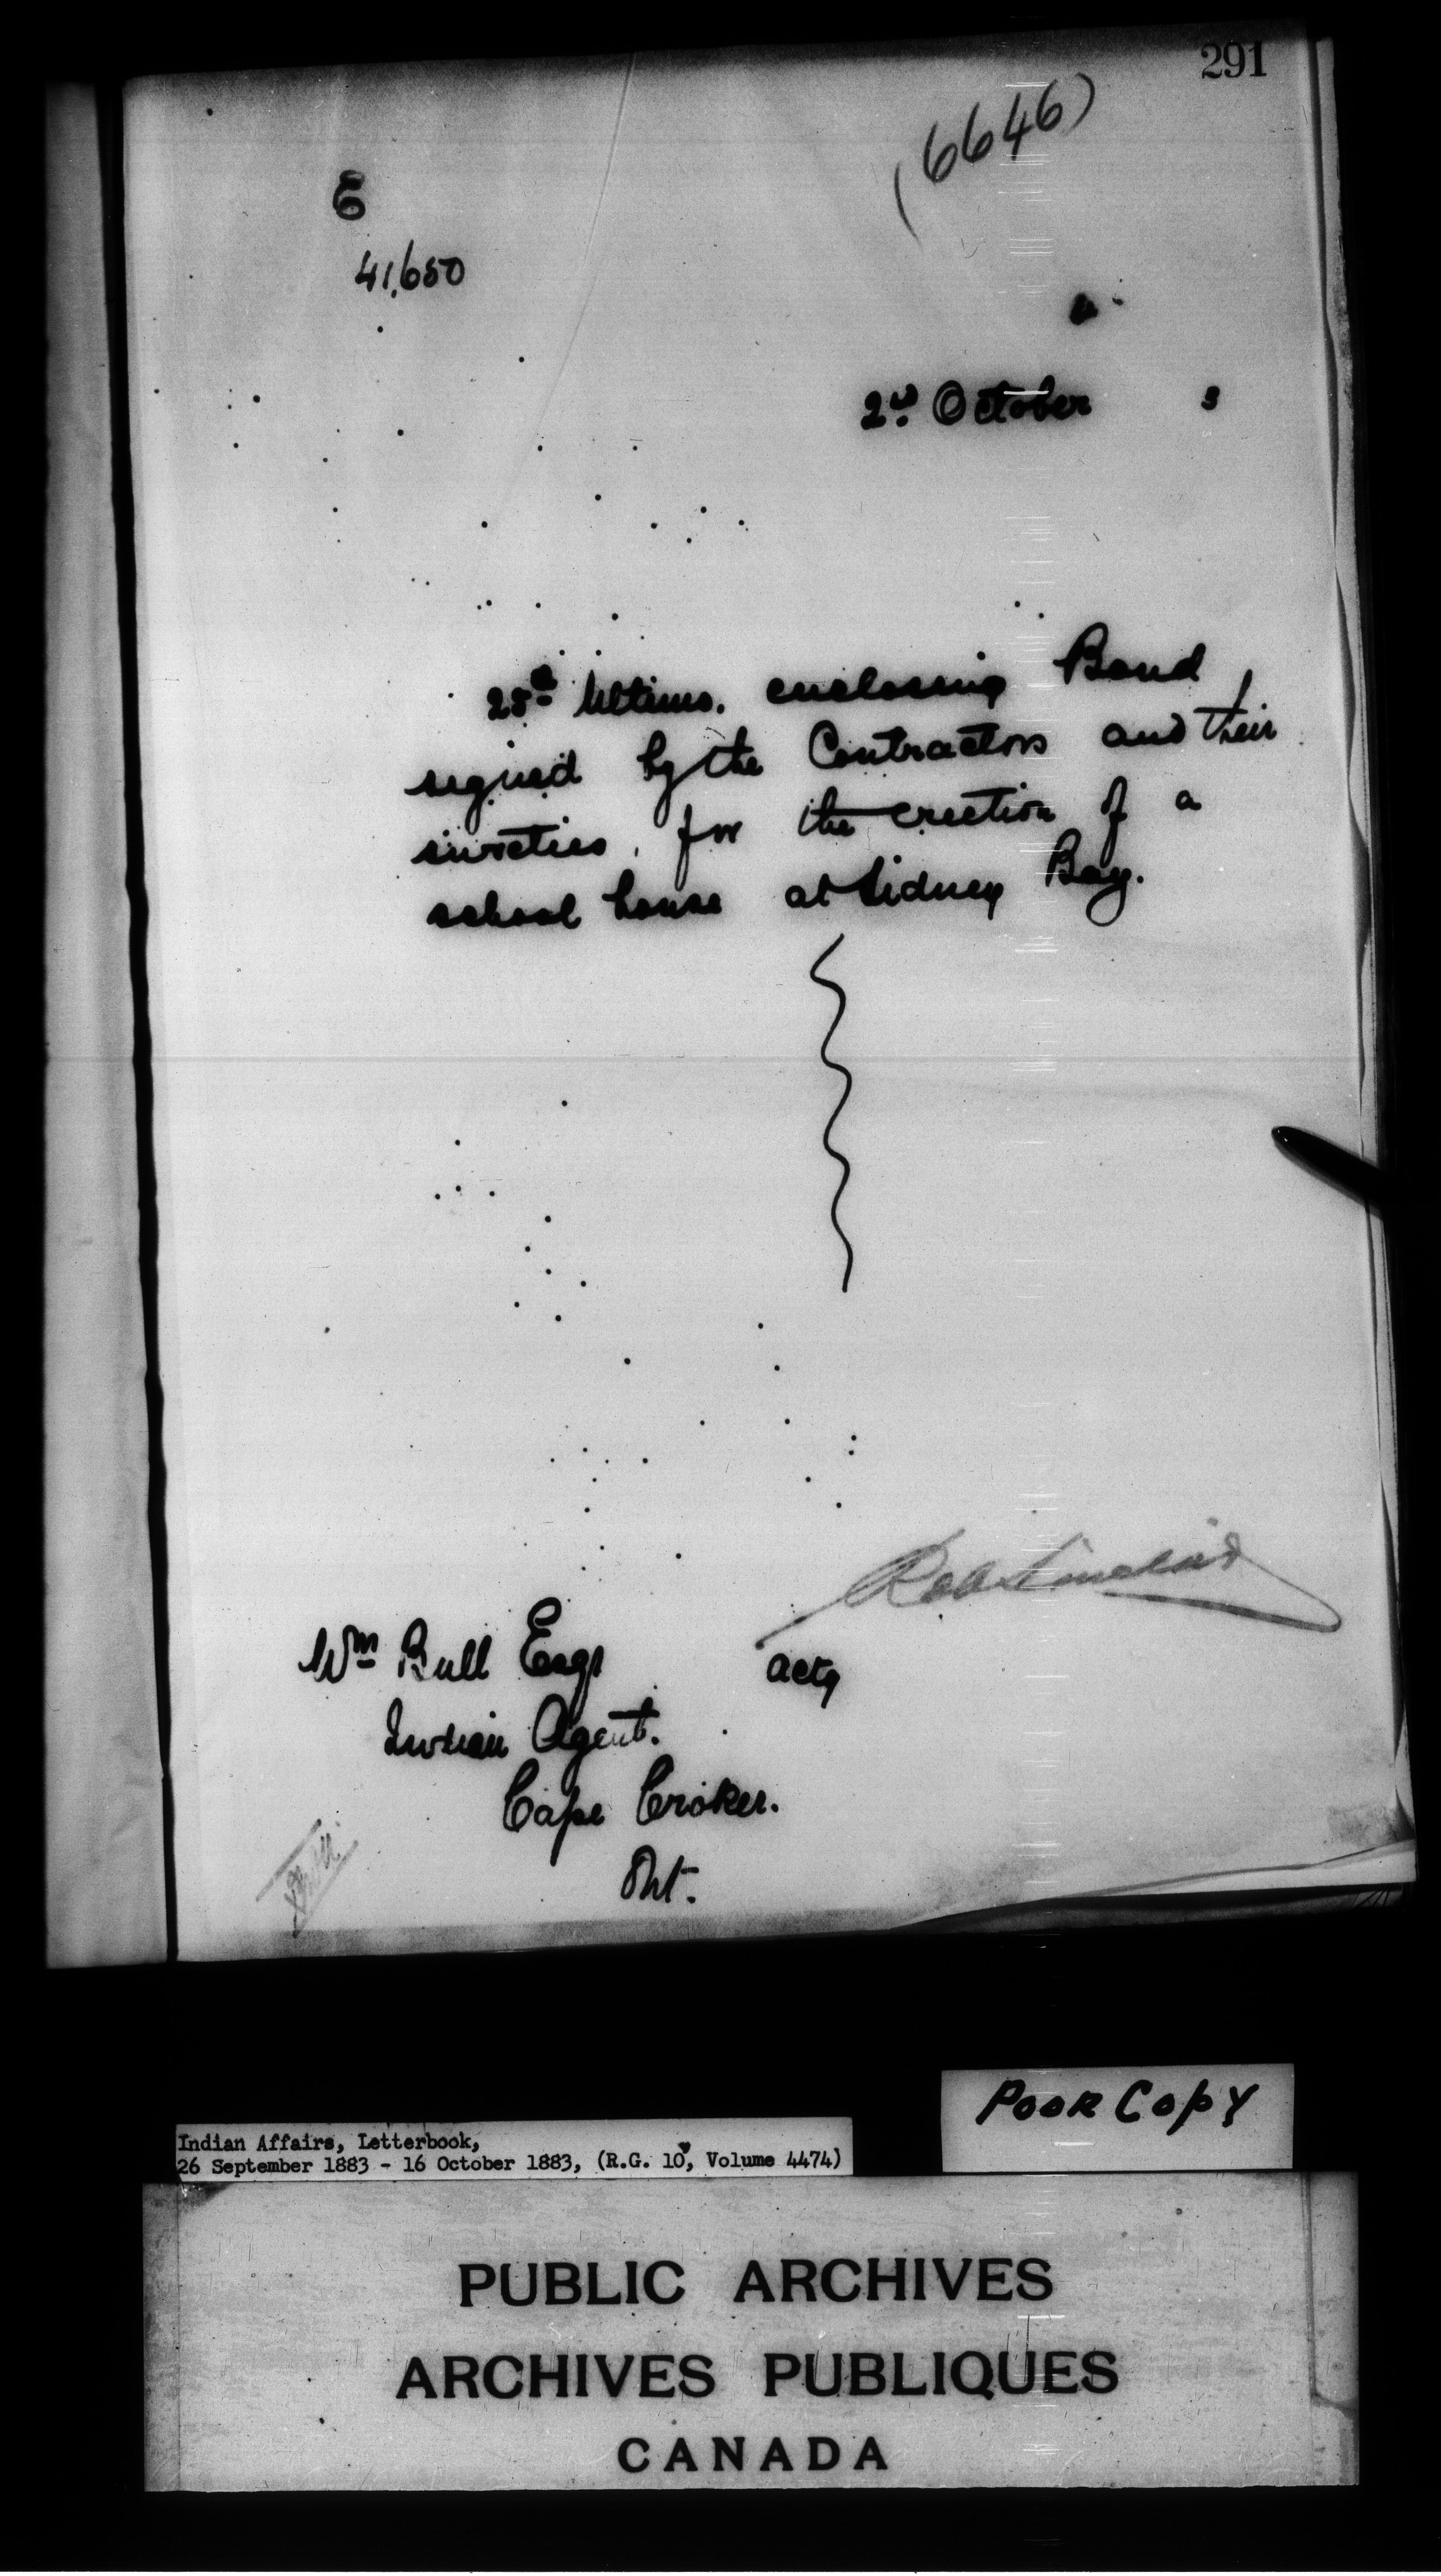 291
(6646)
E
41,650
2d October 3
28th Ultimo. enclosing Bond
signed by the Contractors and their
sureties, for the erection of a
school house at Sidney Bay.
Rob Sinclair
Wm Bull Esqr actg
Indian Agent.
Cape Croker.
Ont.
Poor Copy
Indian Affairs, Letterbook,
26 September 1883 - 16 October 1883, (R.G. 10, Volume 4474)
PUBLIC ARCHIVES
ARCHIVES PUBLIQUES
CANADA